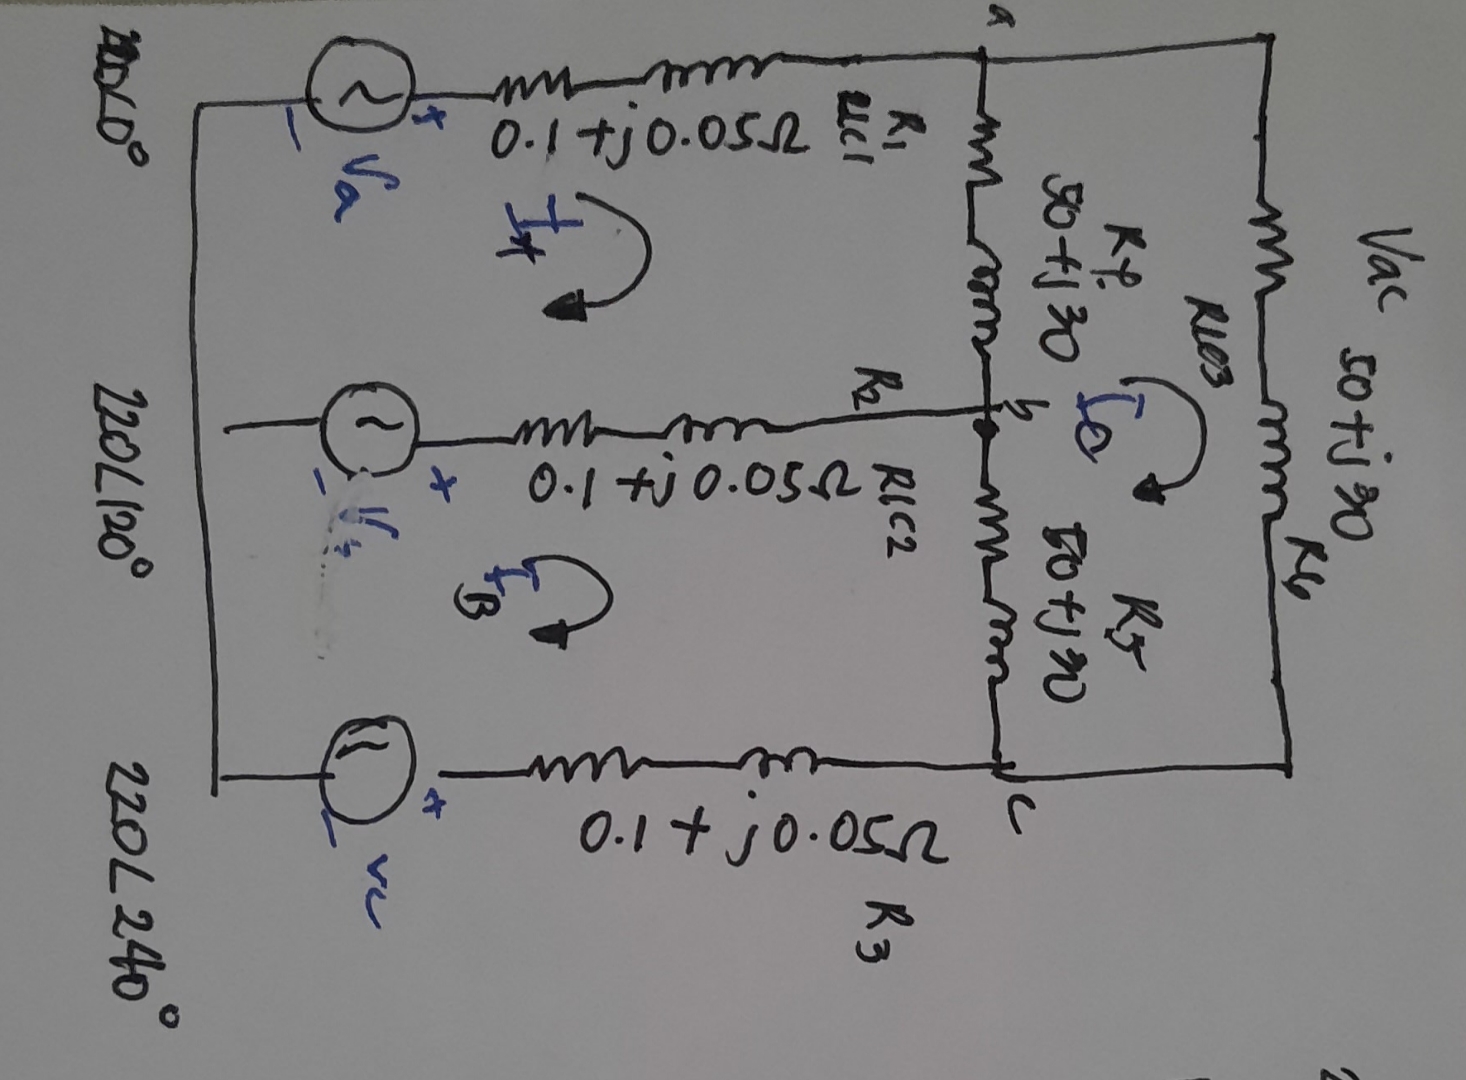 Vac 50+j30
R6
RLC3
a
R4
50+j30
IO
R5
50+j30
b
c
R1
RLC1
0.1+j0.05Ω
R2
RLC2
0.1+j0.05Ω
R3
0.1+j0.05Ω
IA
IB
+
Va
-
+
-
+
Vc
-
∠0°
220∠120°
220∠240°